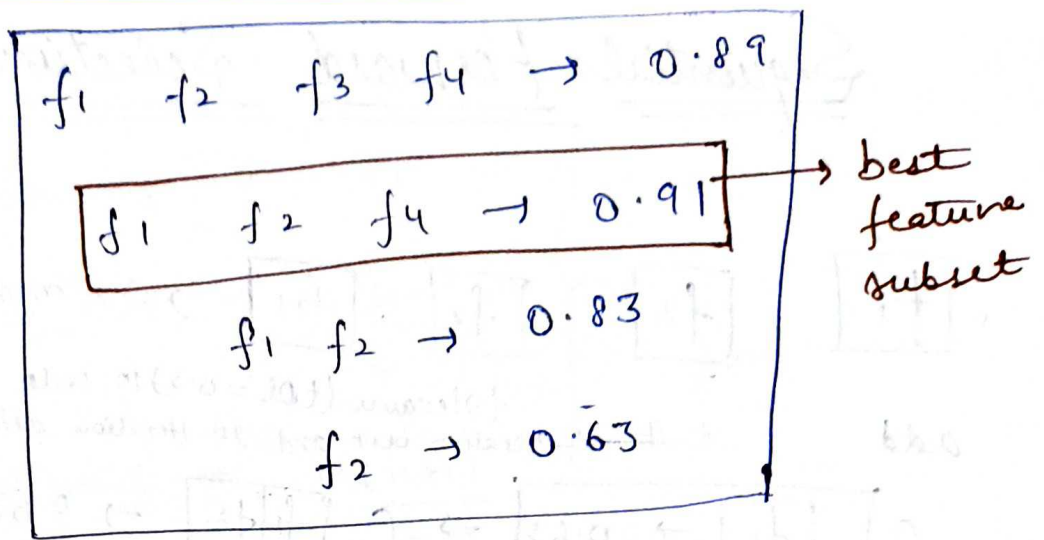 f1 f2 f3 f4 → 0.89
f1 f2 f4 → 0.91 → best
feature
subset
f1 f2 → 0.83
f2 → 0.63